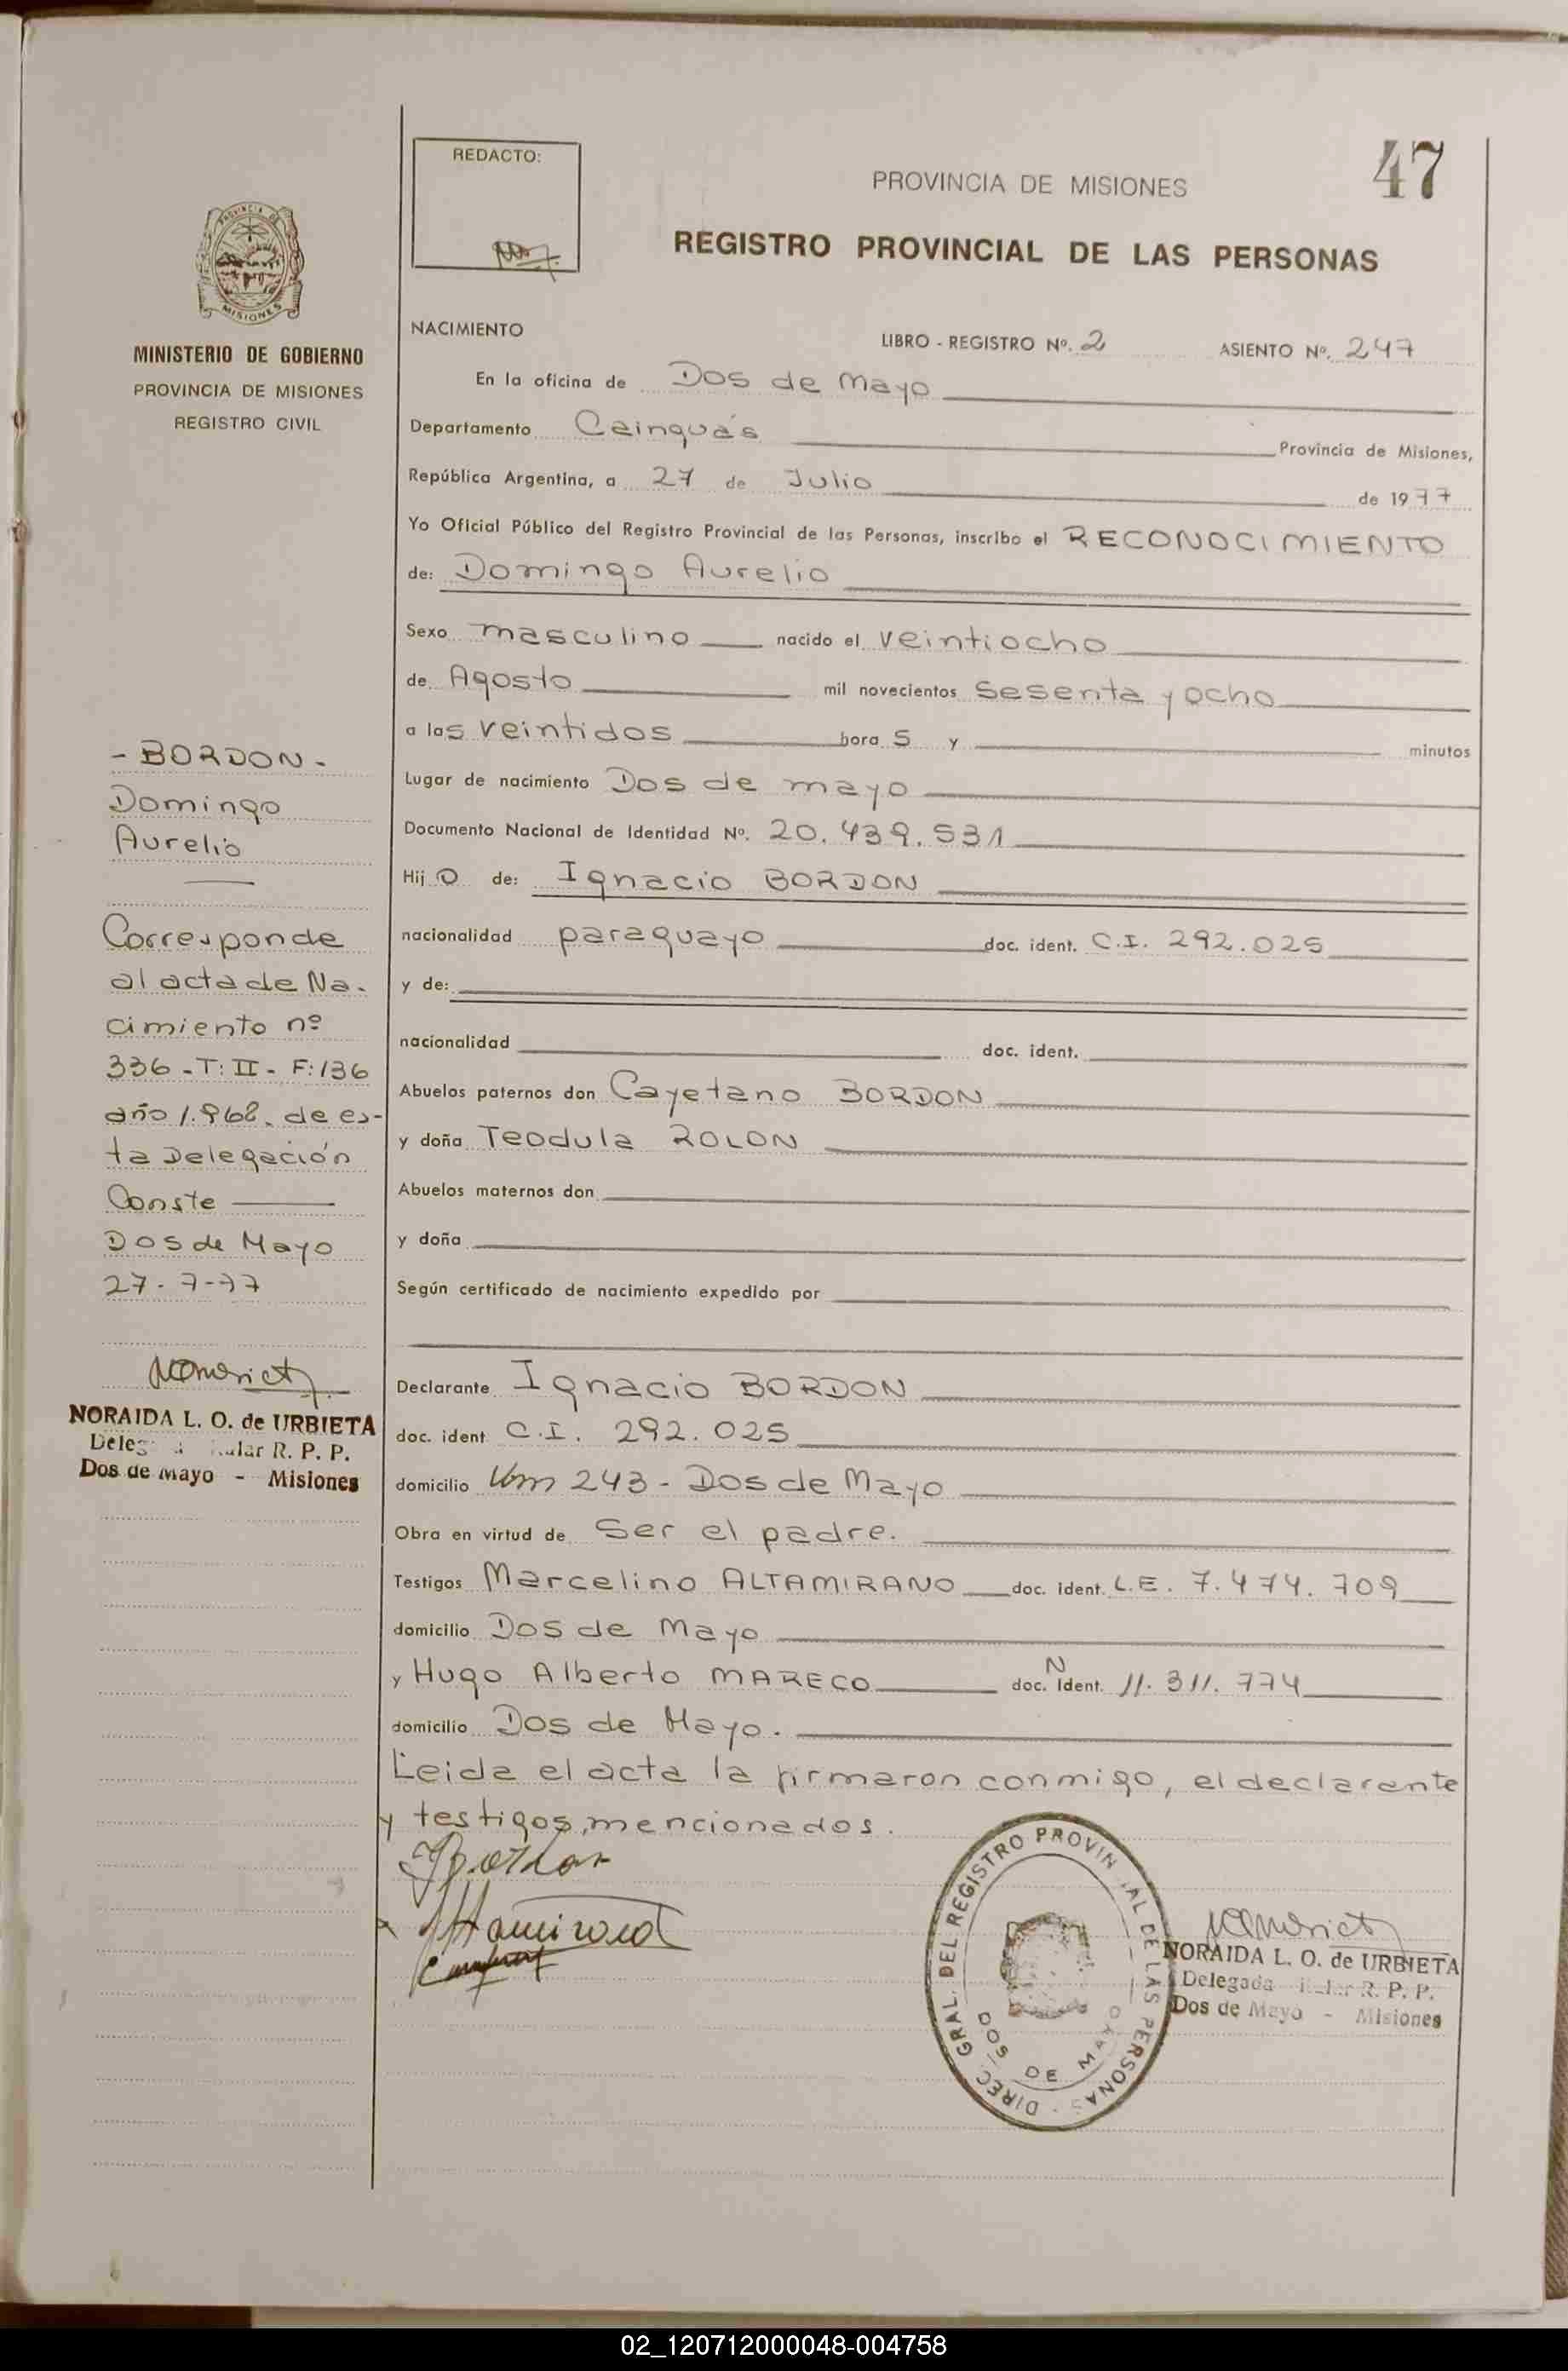 47
REDACTO:
PROVINCIA DE MISIONES
REGISTRO PROVINCIAL DE LAS PERSONAS
MISIONES
MINISTERIO DE GOBIERNO
PROVINCIA DE MISIONES
REGISTRO CIVIL
NACIMIENTO LIBRO - REGISTRO Nº. 2 ASIENTO Nº. 247
En la oficina de Dos de Mayo
Departamento Cainguás Provincia de Misiones,
República Argentina, a 27 de Julio de 1977
Yo Oficial Público del Registro Provincial de las Personas, inscribo el RECONOCIMIENTO
de: Domingo Aurelio
Sexo masculino nacido el veintiocho
de Agosto mil novecientos sesenta y ocho
a las veintidos hora s y minutos
Lugar de nacimiento Dos de mayo
Documento Nacional de Identidad Nº. 20.439.531
Hij o de: Ignacio BORDON
nacionalidad paraguayo doc. ident. C.I. 292.025
y de:
nacionalidad doc. ident.
Abuelos paternos don Cayetano BORDON
y doña Teodula ROLON
Abuelos maternos don
y doña
Según certificado de nacimiento expedido por
Declarante Ignacio BORDON
doc. ident C.I. 292.025
domicilio Km 243 - Dos de Mayo
Obra en virtud de Ser el padre.
Testigos Marcelino ALTAMIRANO doc. ident. L.E. 7.474.709
domicilio Dos de Mayo
y Hugo Alberto MARECO doc. N ident. 11.311.774
domicilio Dos de Mayo.
Leida el acta la firmaron conmigo, el declarante
y testigos, mencionados.
- BORDON -
Domingo
Aurelio
Corresponde
al acta de Na-
cimiento nº
336 - T: II - F: 136
año 1.968. de es-
ta Delegación
Conste
Dos de Mayo
27-7-77
NORAIDA L. O. de URBIETA
R. P. P.
Dos de Mayo - Misiones
DIREC. GRAL. DEL REGISTRO PROVIN AL DE LAS PERSONAS
DOS DE MAYO
NORAIDA L. O. de URBIETA
Delegada R. P. P.
Dos de Mayo - Misiones
02_120712000048-004758